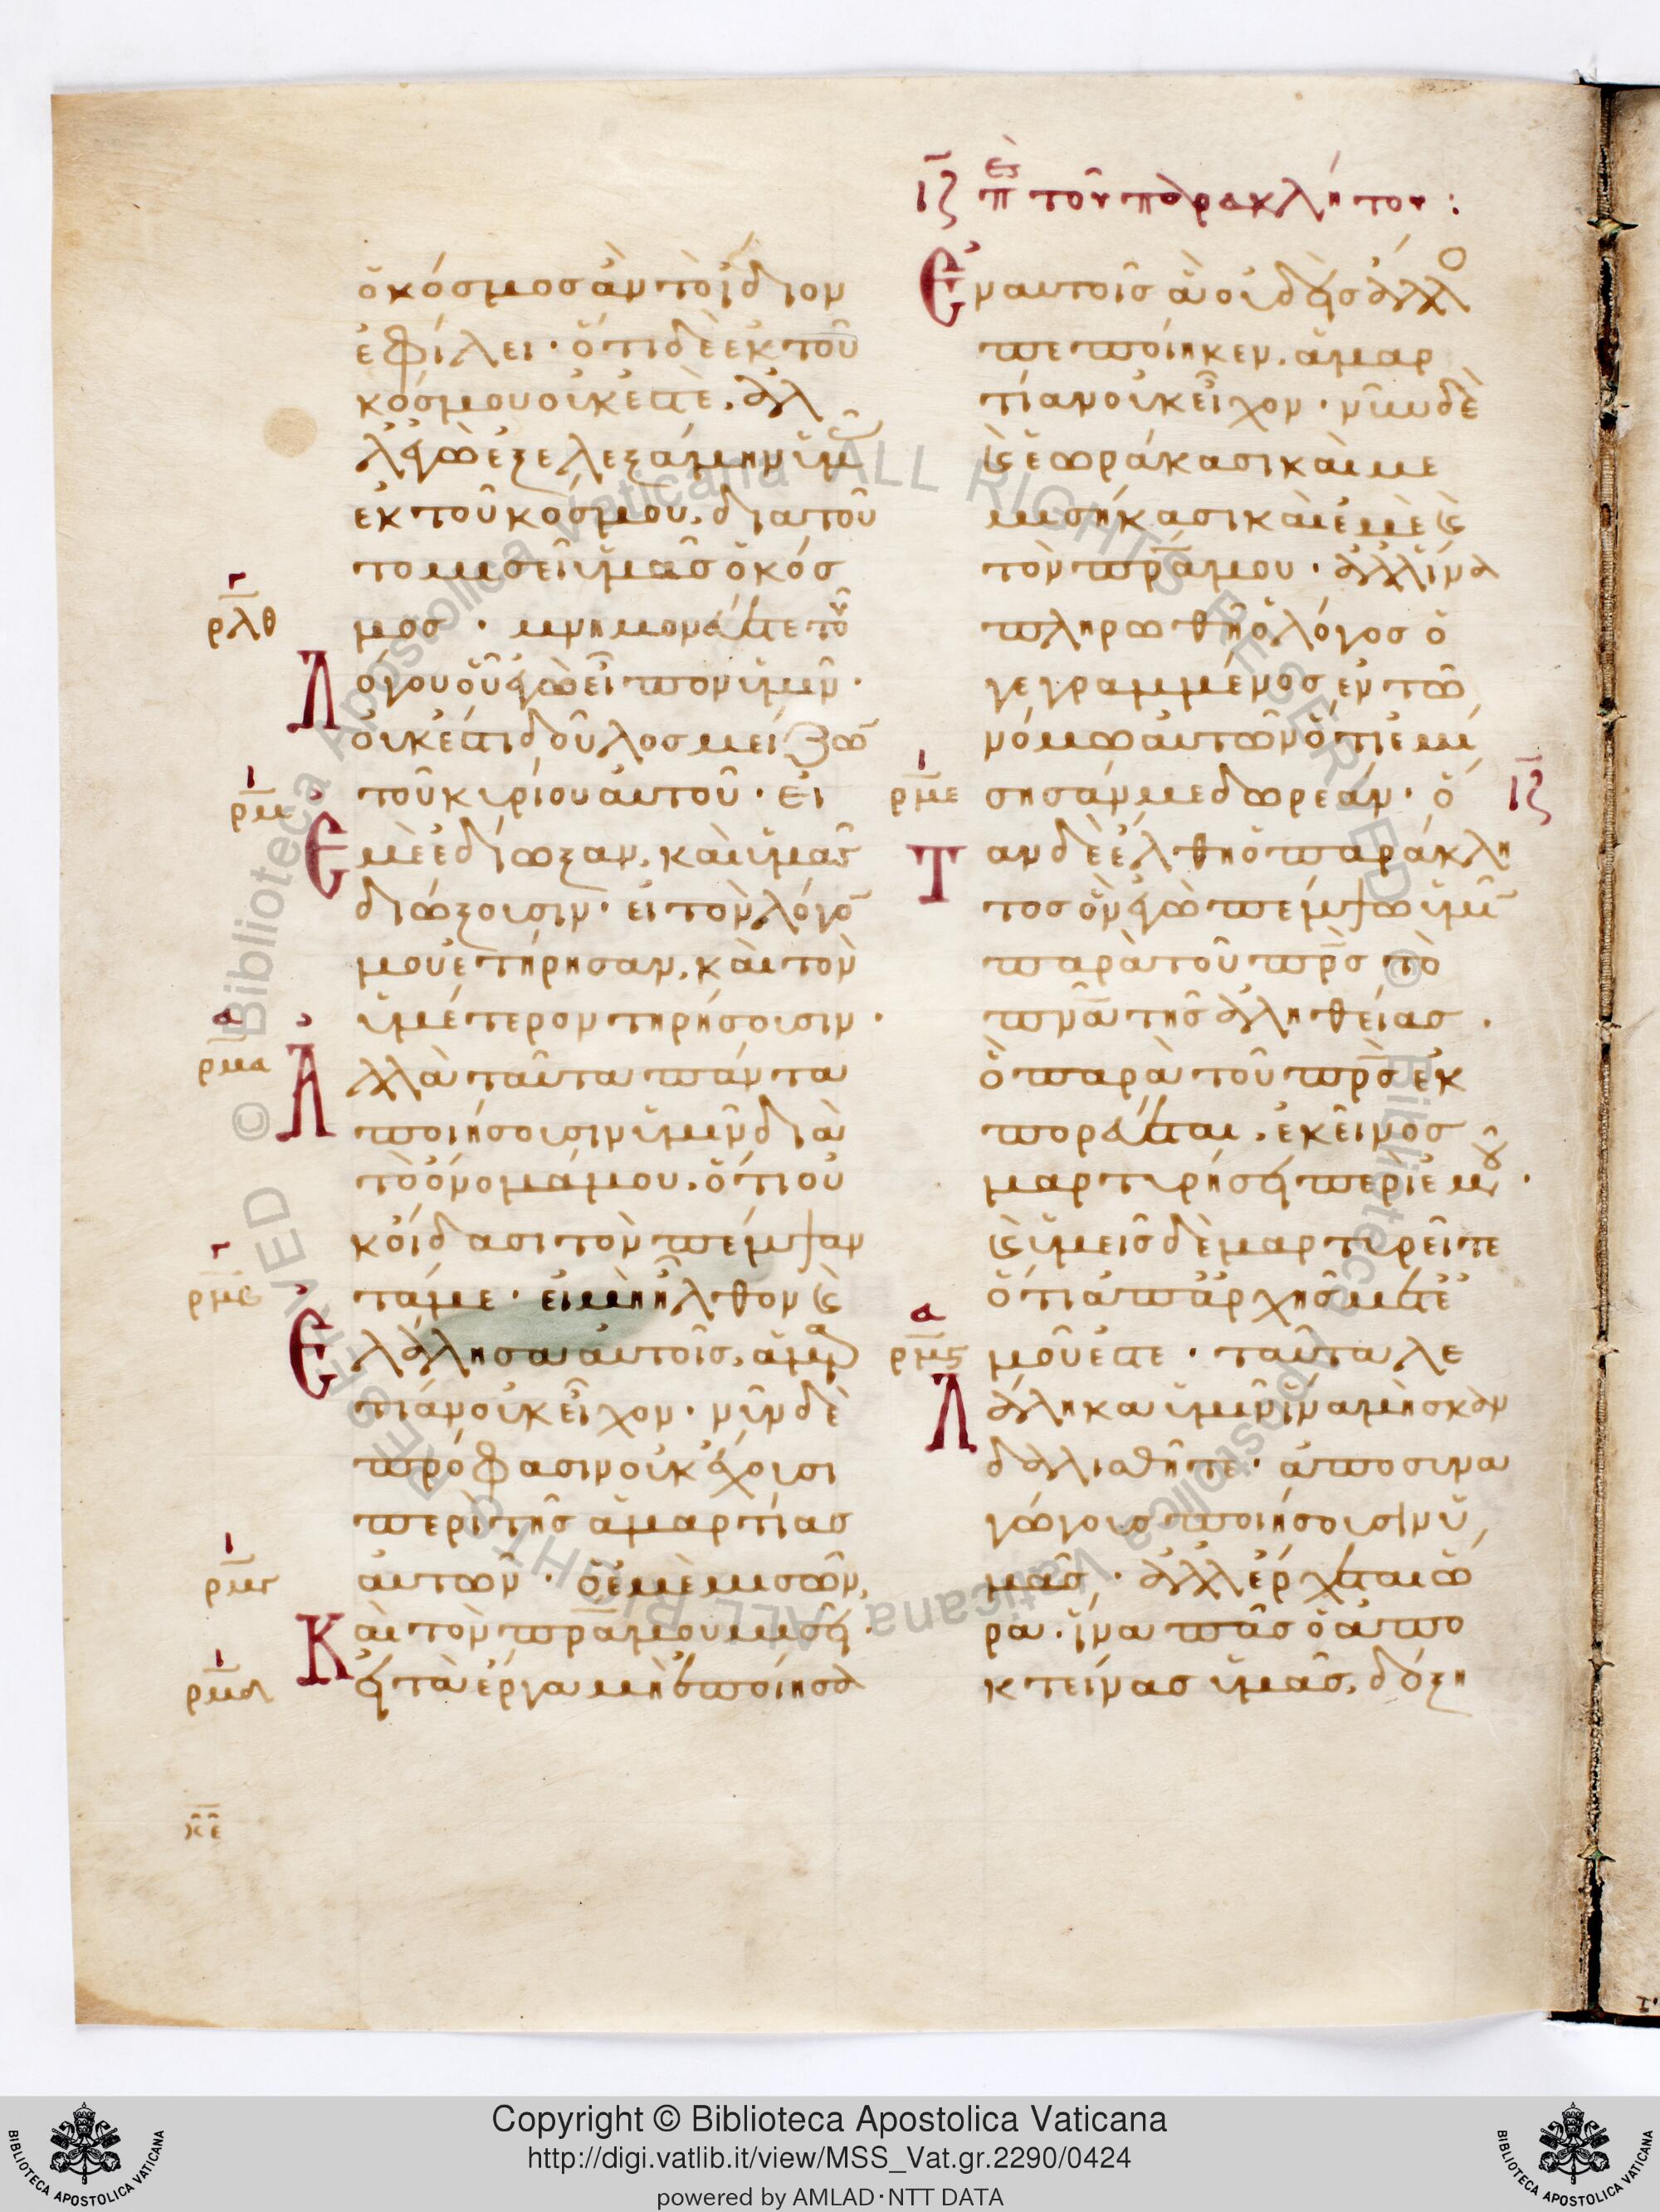 ιζ πε τοῦ παρακλήτου :
ὁ κόσμος ἂν τὸ ἴδιον
ἐφίλει · ὅτι δὲ ἐκ τοῦ
κόσμου οὐκ ἐστὲ, ἀλ
λ ἐγὼ ἐξελεξάμην ὑμ
ἐκ τοῦ κόσμου, δια τοῦ
το μισεῖ ὑμᾶς ὁ κόσ
μος · μνημονεύετε τοῦ
λόγου οὗ ἐγὼ εἶπον ὑμῖν ·
οὐκ ἔστι δοῦλος μείζω
τοῦ κυρίου αὐτοῦ · εἰ
ἐμὲ ἐδίωξαν, καὶ ὑμᾶς
διώξουσιν · εἰ τὸν λόγο
μου ἐτήρησαν, καὶ τὸν
ὑμέτερον τηρήσουσιν ·
ἀλλὰ ταῦτα πάντα
ποιήσουσιν ὑμῖν διὰ
τὸ ὄνομά μου, ὅτι οὐ
κ οἴδασι τὸν πέμψαν
τά με · εἰ μὴ ἦλθον ϗ
ἐλάλησα αὐτοῖς, ἁμαρ
τίαν οὐκ εἶχον · νῦν δὲ
πρόφασιν οὐκ ἔχουσι
περὶ τῆς ἁμαρτίας
αὐτῶν · ὁ ἐμὲ μισῶν,
καὶ τὸν πρα μου μισεῖ ·
εἰ τὰ ἔργα μὴ ἐποίησα
ἐν αὐτοῖς ἃ οὐδεὶς ἄλλο
πεποίηκεν, ἁμαρ
τίαν οὐκ εἶχον · νῦν δὲ
ϗ ἑωράκασι καὶ με
μισήκασι καὶ ἐμὲ ϗ
τὸν πρα μου · ἀλλ ἵνα
πληρωθῇ ὁ λόγος ὁ
γεγραμμένος ἐν τῶ
νόμω αὐτῶν ὅτι ἐμί
σησάν με δωρεάν · ὅ
ταν δὲ ἔλθη ὁ παράκλη
τος ὃν ἐγὼ πέμψω ὑμῖ
παρὰ τοῦ πρς τὸ
πνα τῆς ἀληθείας ·
ὃ παρὰ τοῦ πρς ἐκ
πορεύεται, ἐκεῖνος
μαρτυρήσει περὶ ἐμοῦ ·
ϗ ὑμεῖς δὲ μαρτυρεῖτε
ὅτι ἀπ ἀρχῆς μετ ἐ
μοῦ ἐστε · ταῦτα λε
λάληκα ὑμῖν ἵνα μὴ σκαν
δαλισθῆτε · ἀποσυνα
γώγους ποιήσουσιν ὑ
μᾶς · ἀλλ ἔρχεται ὥ
ρα · ἵνα πᾶς ὁ ἀπο
κτείνας ὑμᾶς, δόξη
ρλθ
ρμ
ρμα
ρμβ
ρμγ
ρμδ
ρμε
ρμς
ιζ
Copyright © Biblioteca Apostolica Vaticana
http://digi.vatlib.it/view/MSS_Vat.gr.2290/0424
powered by AMLAD·NTT DATA
BIBLIOTECA APOSTOLICA VATICANA
BIBLIOTECA APOSTOLICA VATICANA
© Biblioteca Apostolica Vaticana ALL RIGHTS RESERVED
© Biblioteca Apostolica Vaticana ALL RIGHTS RESERVED